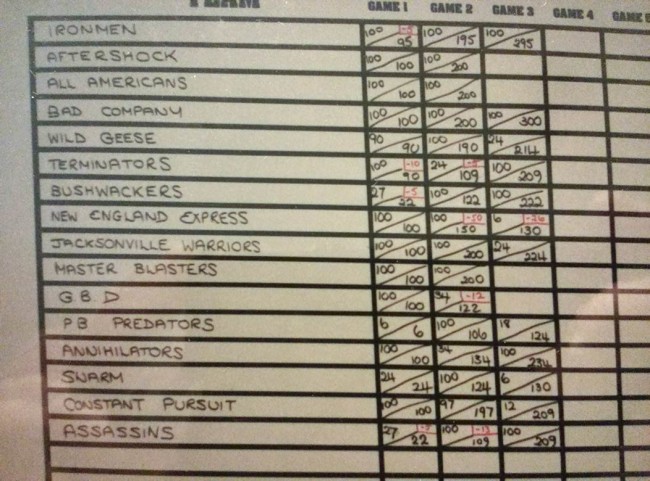 GAME 1 GAME 2 GAME 3 GAME 4 GAME
IRONMEN 100 -5 95 100 195 100 295
AFTERSHOCK 100 100 100 200
ALL AMERICANS 100 100 100 200
BAD COMPANY 100 100 100 200 100 300
WILD GEESE 90 90 100 190 24 214
TERMINATORS 100 -10 90 24 -5 109 100 209
BUSHWACKERS 27 -5 22 100 122 100 222
NEW ENGLAND EXPRESS 100 100 100 -50 150 6 -26 130
JACKSONVILLE WARRIORS 100 100 100 200 24 224
MASTER BLASTERS 100 100 100 200
G.B.D 100 100 34 -12 122
PB PREDATORS 6 6 100 106 18 124
ANNIHILATORS 100 100 34 134 100 234
SWARM 24 24 100 124 6 130
CONSTANT PURSUIT 100 100 97 197 12 209
ASSASSINS 27 -5 22 100 -13 109 100 209